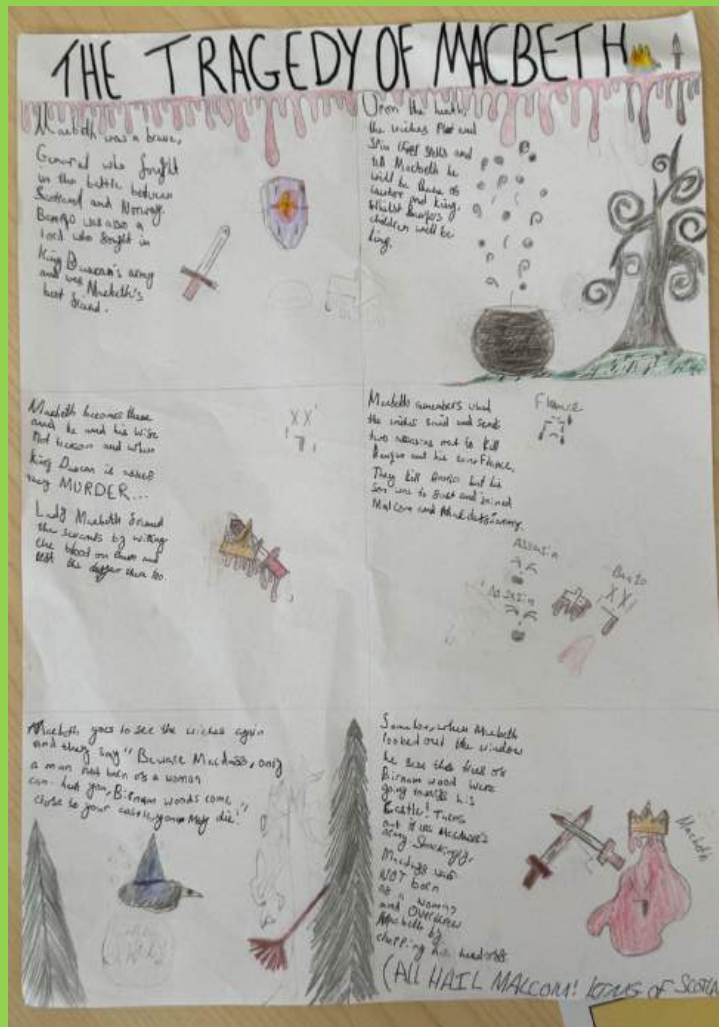 THE TRAGEDY OF MACBETH
Macbeth was a brave,
General who fought
in the battle between
Scotland and Norway.
Banqo was also a
lord who fought in
King Duncan's army
and was Macbeth's
best friend.
Upon the heath,
the witches Plot and
Spin their spells and
tell Macbeth he
will be thane of
cawdor and king,
Whilst Banqo's
children will be
king.
Macbeth becomes thane
and he and his wife
Plot treason and when
King Duncan is asleep
they MURDER...
Lady Macbeth framed
the servants by wiping
the blood on them and
left the dagger there too.
Macbeth remembers what
the witches said and sends
two assasins out to kill
Banquo and his son Flance,
They kill Banqo but his
Son was to fast and joined
Malcom and Macduffs army.
Flance
Assasin
Assasin
Banqo
Macbeth goes to see the witches again
and they say "Beware Macduff, only
a man not born of a woman
can hurt you, Birnam woods come
close to your castle, your May die."
Somehow, when Macbeth
looked out the window
he saw the trees of
Birnam wood were
going towards his
Castle! Turns
out it was Macduff's
army. Shockingly,
Macduff was
NOT born
of a woman
and OVERTHREW
Macbeth by
chopping his head off.
Macbeth
(ALL HAIL MALCOM! KING OF